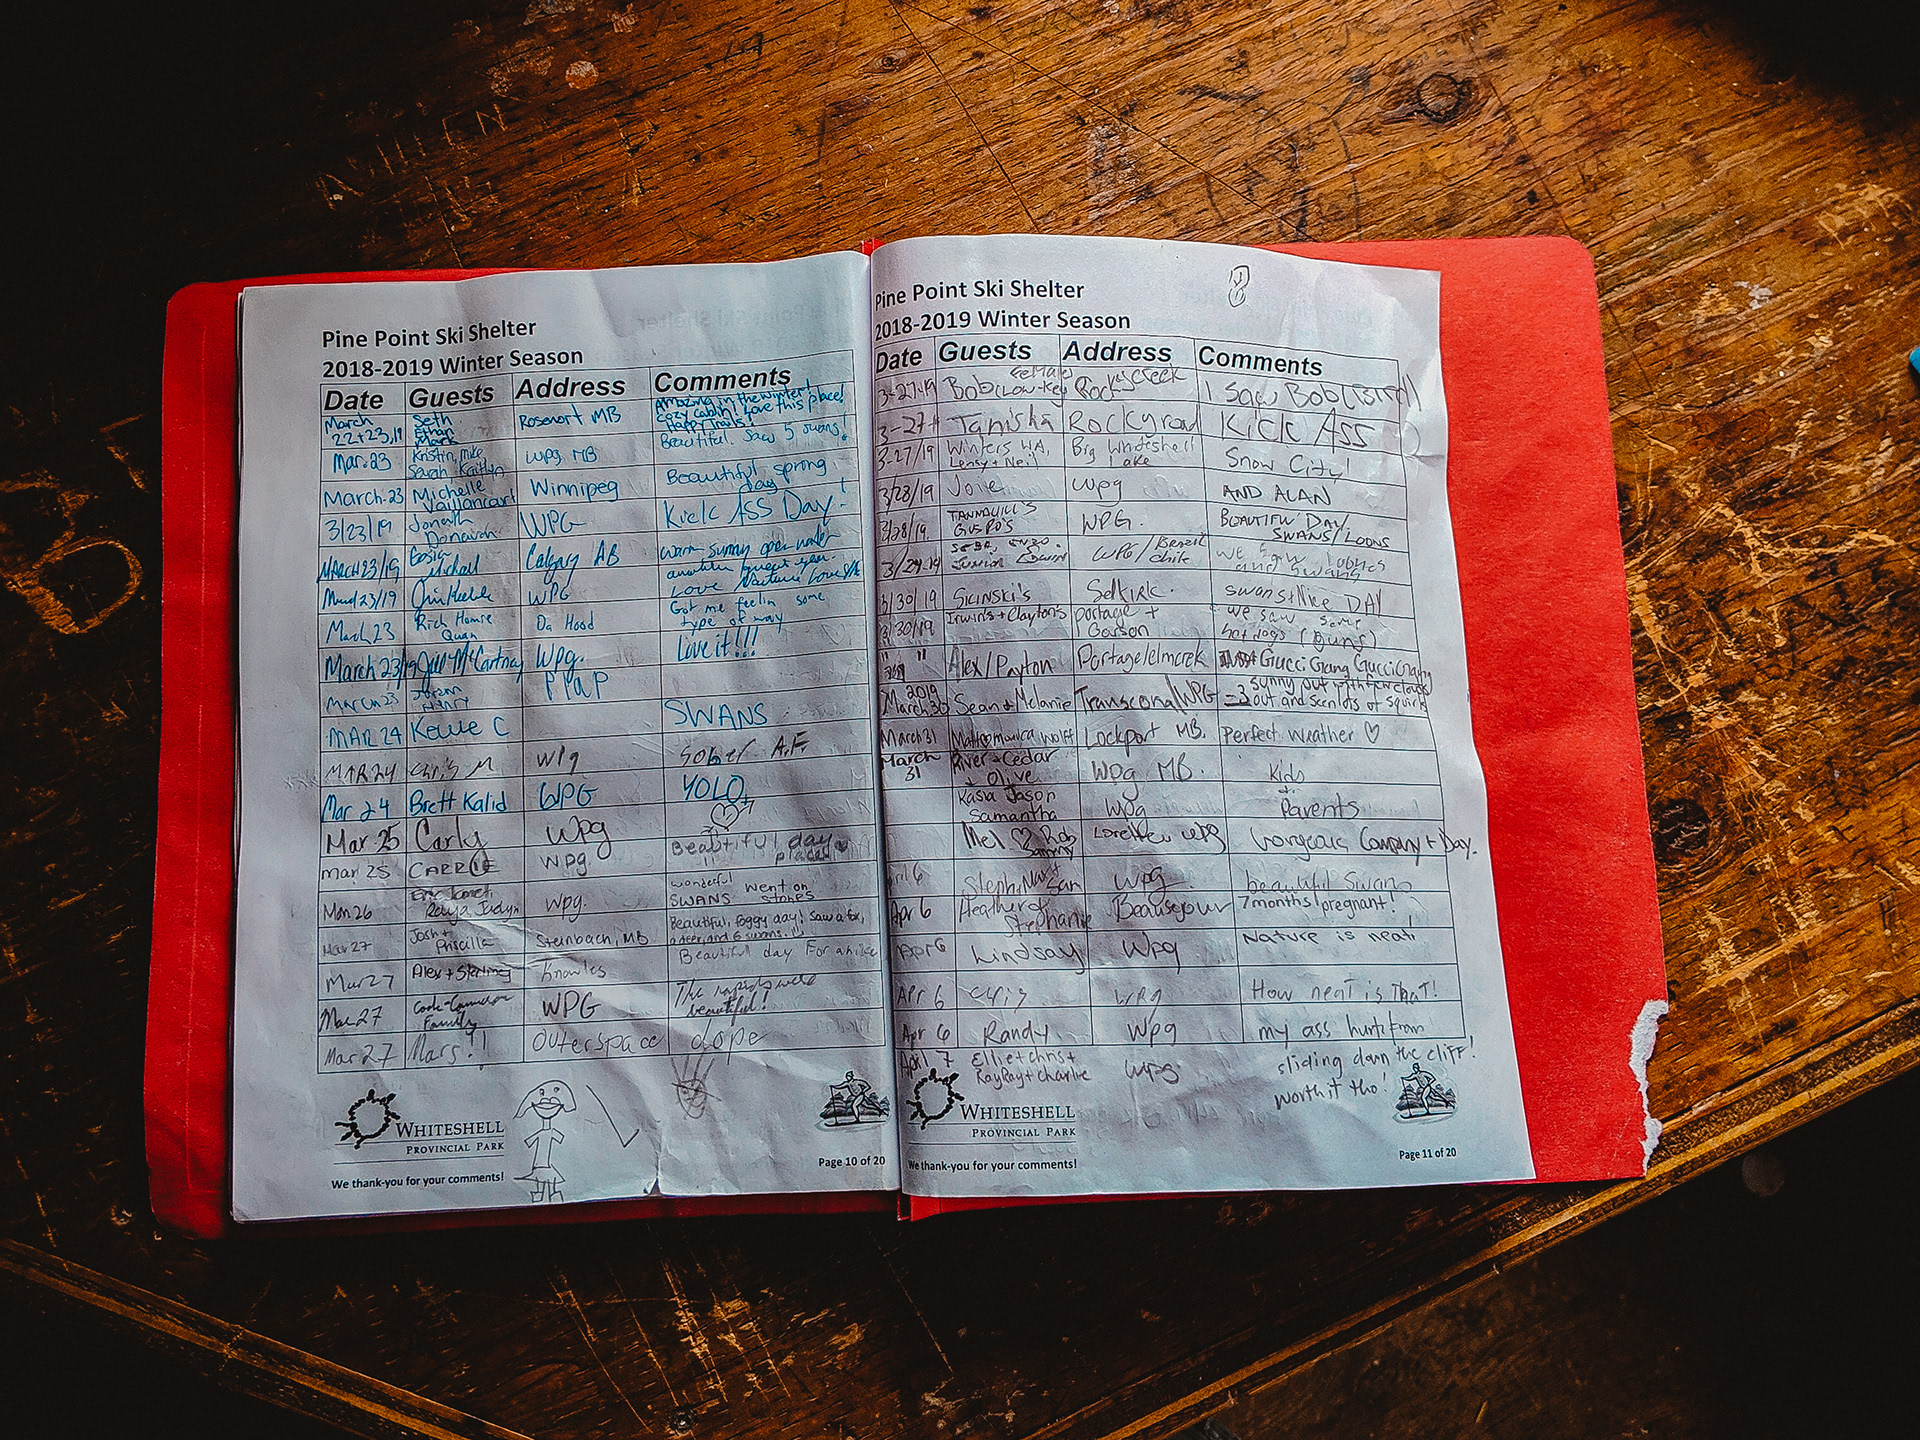 Pine Point Ski Shelter
2018-2019 Winter Season
Date Guests Address Comments
March 22+23,19 Seth Ethan Mark Rosenort MB Amazing in the winter! Cozy cabin! Love this place! Happy Trails!
Mar. 23 Kristin, Mike Sarah Kaitlyn WPG, MB Beautiful. Saw 5 swans!
March 23 Michelle Vaillancourt Winnipeg Beautiful spring day
3/23/19 Donovan WPG Kick ASS Day!
MARCH 23/19 Gosia Michael Calgary AB warm sunny open water another great year. Love Nature Love
March 23/19 WPG
March 23 Rich Homie Quan Da Hood Got me feelin some type of way
March 23/19 Jill McCartney Wpg. Live it!!!
March 23 Henry
MAR 24 Kellie C SWANS
MAR 24 Chris M Wpg Sober A.F.
Mar 24 Brett Kalid WPG YOLO
Mar 25 Carly Wpg
Mar 25 CARRIE WPG. Beautiful day places
Mar 26 Eric Janet, Judyn Wpg. wonderful SWANS went on stones
Mar 27 Josh + Priscilla Steinbach, MB Beautiful, foggy day! Saw a fox, a deer, and 6 swans.
Mar 27 Alex + Sterling Knowles Beautiful day For a hike
Mar 27 Cameron Family WPG The rapids were beautiful!
Mar 27 Mars!! Outerspace dope
WHITESHELL
PROVINCIAL PARK
We thank-you for your comments!
Page 10 of 20
8
Pine Point Ski Shelter
2018-2019 Winter Season
Date Guests Address Comments
3-27-19 Bob (Low-Key Female) Rocky Creek I saw Bob
3-27 Tanisha Rockyroad Kick Ass
3-27/19 Winters, Lensy + Neil Big Whiteshell Lake Snow City!
3/28/19 Wpg AND ALAN
3/28/19. TANNAHILL'S WPG. BEAUTIFUL DAY, SWANS/LOONS
3/29/19 Junior WPG/Brazil Chile we saw and swans
3/30/19 Sicinski's Selkirk. Swans + Nice DAY
3/30/19 Irwin's + Clayton's portage + Carson we saw some hot dogs (buns)
" " Alex/Payton Portage/elmcreek Gucci Gang Gucci Gang
2019 March 30 Sean + Melanie Transcona/WPG sunny out with few clouds out and seen lots of squirls
March 31 Matt monica wolff Lockport MB. Perfect weather ♡
March 31 River + Cedar + Olive WPG MB. Kids
Kasia Jason Samantha Wpg + Parents
Mel ♡ Rob Sammy Lorette WPG Gorgeous Company + Day.
April 6 Steph, Mark + Sam Wpg beautiful Swans
Apr 6 Heather & Stephanie Beausejour 7 months pregnant!
Apr 6 Lindsay Wpg Nature is neat!
APR 6 Chris WPg How neat is that!
Apr 6 Randy Wpg my ass hurts from
April 7 Ellie + Chris + RayRay + Charlie Wpg sliding down the cliff!
worth it tho!
WHITESHELL
PROVINCIAL PARK
We thank-you for your comments!
Page 11 of 20